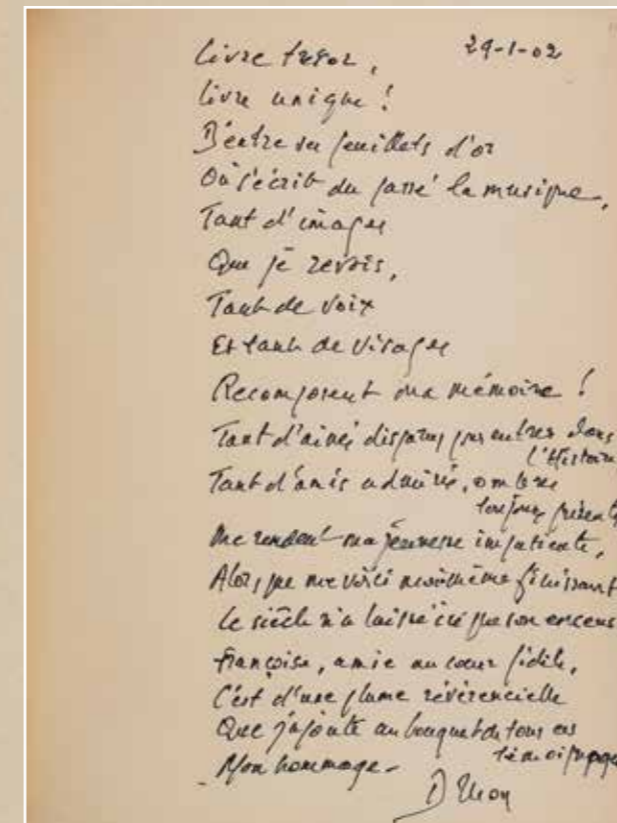 29-1-02
Livre trésor,
Livre unique !
D'entre ses feuillets d'or
Où s'écrit du passé la musique,
Tant d'images
Que je revois,
Tant de voix
Et tant de visages
Recomposent ma mémoire !
Tant d'aînés disparus, entrés dans
l'Histoire
Tant d'amis admirés, ombres
toujours présentes
Me rendent ma jeunesse impatiente,
Alors que me voici moi-même finissant
Le siècle n'a laissé ici que son encens
Françoise, amie au cœur fidèle,
C'est d'une plume révérencielle
Que j'ajoute au bouquet de tous ces
témoignages
Mon hommage -
Druon